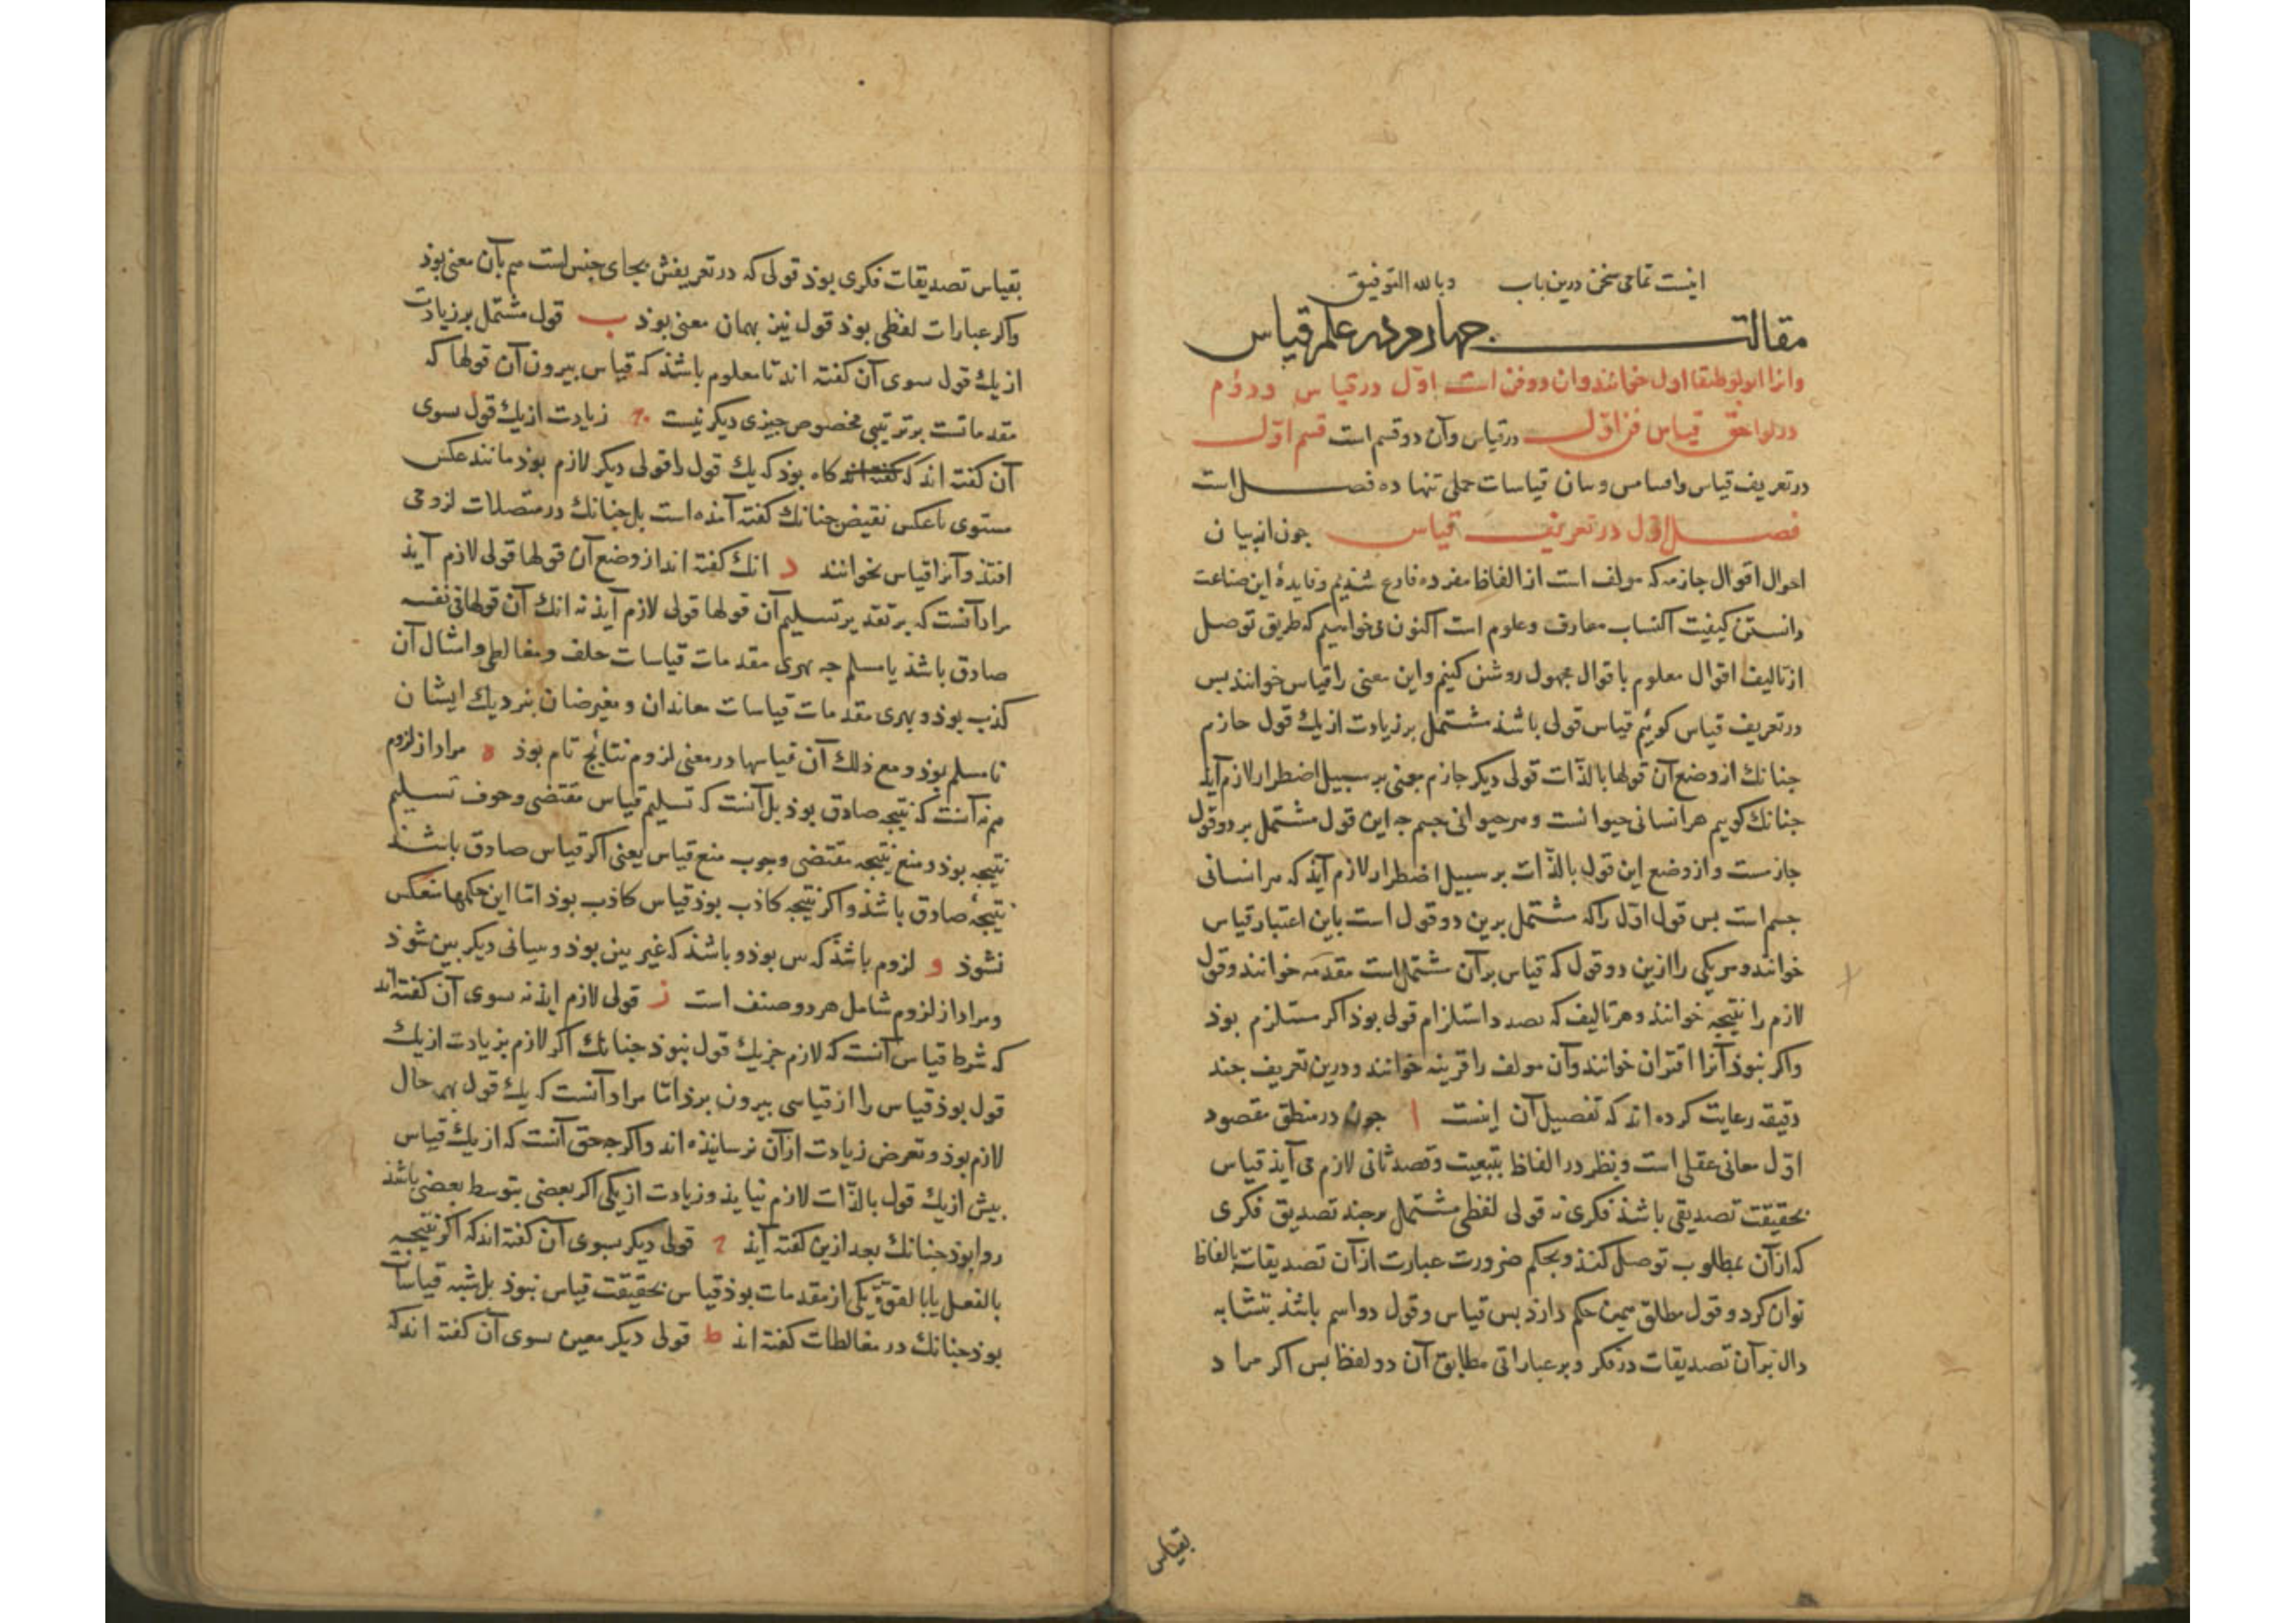 اینست تمامی سخن درین باب وبالله التوفیق
مقالت جهارم در علم قیاس
وانرا انولوطیقا اول خوانند وان دو فن است اوّل در قیاس ودوّم
در لواحق قیاس فن اوّل در قیاس وآن دو قسم است قسم اوّل
در تعریف قیاس واقسامس وبیان قیاسات حملی تنها ده فصل است
فصل اوّل در تعریف قیاس جون از بیان
احوال اقوال جازمه که مولف است از الفاظ مفرده فارغ شذیم وفایدهٔ این صناعت
دانستن کیفیت اکتساب معارف وعلوم است اکنون می خواهیم که طریق توصل
از تالیف اقوال معلوم باقوال مجهول روشن کنیم واین معنی را قیاس خوانند بس
در تعریف قیاس کوئیم قیاس قولی باشذ مشتمل بر زیادت از یك قول جازم
جنانك از وضع آن قولها بالذّات قولی دیکر جازم معین بر سبیل اضطرار لازم آید
جنانك کوییم هر انسانی حیوانست وهر حیوانی جسم جه این قول مشتمل بر دو قول
جازمست واز وضع این قول بالذّات بر سبیل اضطرار لازم آیذ که هر انسانی
جسم است بس قول اوّل را که مشتمل برین دو قول است باین اعتبار قیاس
خوانند وهر یکی را ازین دو قول که قیاس بر آن مشتمل است مقدّمه خوانند وقول
لازم را نتیجه خوانند وهر تالیف که بصدد استلزام قولی بوذ اکر مستلزم بوذ
واکر نبوذ آنرا اقتران خوانند وآن مولف را قرینه خوانند ودرین تعریف جند
دقیقه رعایت کرده اند که تفصیل آن اینست ا جون در منطق مقصود
اوّل معانی عقلی است ونظر در الفاظ بتبعیت وقصد ثانی لازم می آیذ قیاس
بحقیقت تصدیقی باشذ فکری نه قولی لفظی مشتمل بر جند تصدیق فکری
که از آن بمطلوب توصل کنند وبحکم ضرورت عبارت از آن تصدیقات بالفاظ
توان کرد وقول مطلق همین حکم دارذ بس قیاس وقول دو اسم باشذ بتشابه
دال بر آن تصدیقات در فکر وبر عباراتی مطابق آن دو لفظ بس اکر مراد
بقیاس
بقیاس تصدیقات فکری بوذ قولی که در تعریفش بجای جنس است هم بآن معنی بوذ
واکر عبارات لفظی بوذ قول نیز بهمان معنی بوذ ب قول مشتمل بر زیادت
از یك قول سوی آن کفته اند تا معلوم باشذ که قیاس بیرون آن قولها که
مقدماتست بر ترتیبی مخصوص جیزی دیکر نیست ج زیادت از یك قول سوی
آن کفته اند که کاه بوذ که یك قول را قولی دیکر لازم بوذ مانند عکس
مستوی یا عکس نقیض جنانك کفته آمذه است بل جنانك در متصلات لزومی
افتذ وآنرا قیاس نخوانند د انك کفته اند از وضع آن قولها قولی لازم آیذ
مراد آنست که بر تقدیر تسلیم آن قولها قولی لازم آیذ نه انك آن قولها فی نفسه
صادق باشذ یا مسلم جه بهری مقدمات قیاسات خلف ومغالطی وامثال آن
کذب بوذ وبهری مقدمات قیاسات معاندان ومغیرضان بنزدیك ایشان
نامسلم بوذ ومع ذلك آن قیاسها در معنی لزوم نتائج تام بوذ ه مراد از لزوم
هم نه آنست که نتیجه صادق بوذ بل آنست که تسلیم قیاس مقتضی وجوب تسلیم
نتیجه بوذ ومنع نتیجه مقتضی وجوب منع قیاس یعنی اکر قیاس صادق باشذ
نتیجهٔ صادق باشذ واکر نتیجه کاذب بوذ قیاس کاذب بوذ امّا این حکمها منعکس
نشوذ و لزوم باشذ که بین بوذ وباشذ که غیر بین بوذ وببیانی دیکر بین شوذ
ومراد از لزوم شامل هر دو صنف است ز قولی لازم ایذ نه سوی آن کفته اند
که شرط قیاس آنست که لازم جز یك قول نبوذ جنانك اکر لازم بزیادت از یك
قول بوذ قیاس را از قیاسی بیرون برذ امّا مراد آنست که یك قول بهر حال
لازم بوذ وتعرض زیادت از آن نرسانیذه اند واکر جه حق آنست که از یك قیاس
بیش از یك قول بالذّات لازم نیایذ وزیادت از یکی اکر بعضی بتوسط بعضی باشذ
روا بوذ جنانك بعد ازین کفته آیذ ح قولی دیکر سوی آن کفته اند که اکر نتیجه
بالفعل یا بالقوّة یکی از مقدمات بوذ قیاس بحقیقت قیاس نبوذ بل شبه قیاسات
بوذ جنانك در مغالطات کفته اند ط قولی دیکر معین سوی آن کفته اند که